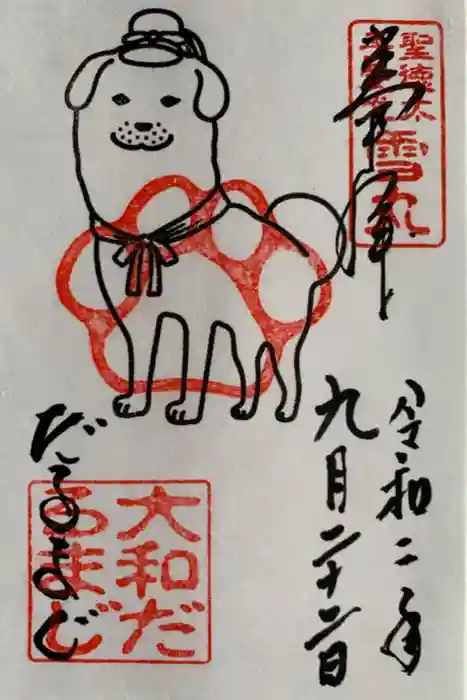 奉拝
聖徳太
雪丸
令和二年
九月二十二日
だるまじ
大和だ
るまじ